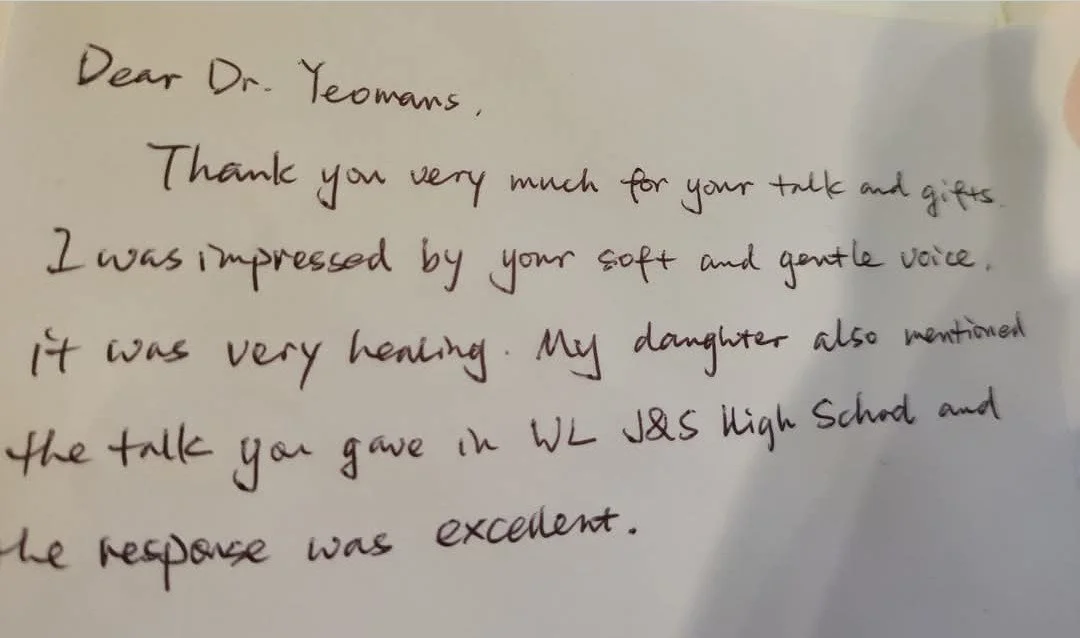 Dear Dr. Yeomans,
Thank you very much for your talk and gifts.
I was impressed by your soft and gentle voice.
it was very healing. My daughter also mentioned
the talk you gave in WL J&S High School and
the response was excellent.